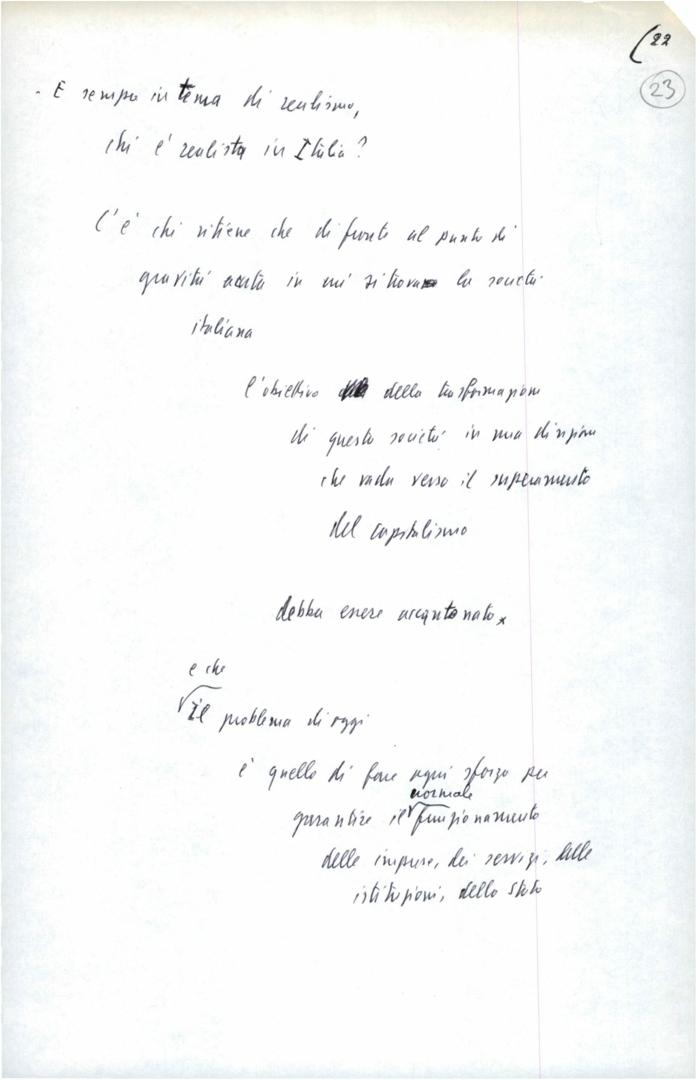 (22
23
- E sempre in tema di realismo,
chi è realista in Italia?
C'è chi ritiene che di fronte al punto di
gravità acuta in cui si trova la società
italiana
l'obiettivo della trasformazione
di questa società in una direzione
che vada verso il superamento
del capitalismo
debba essere accantonato
e che
il problema di oggi
è quello di fare ogni sforzo per
normale
garantire il funzionamento
delle imprese, dei servizi, delle
istituzioni, dello stato